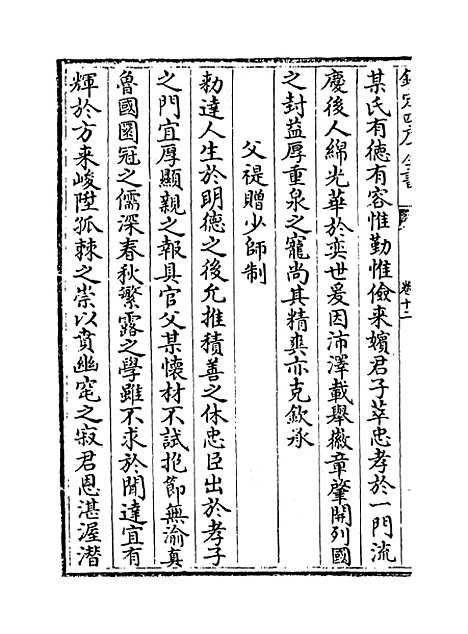 欽定四庫全書
卷十二
某氏有德有容惟勤惟儉来嬪君子萃忠孝於一門流
慶後人綿光華於奕世爰因沛澤載舉徽章肇開列國
之封益厚重泉之寵尚其精爽亦克欽承
父禔贈少師制
勅達人生於明德之後允推積善之休忠臣出於孝子
之門宜厚顯親之報具官父某懷材不試抱節無渝真
魯國圜冠之儒深春秋繁露之學雖不求於聞達宜有
輝於方来峻陞孤棘之崇以賁幽窀之寂君恩湛渥潜